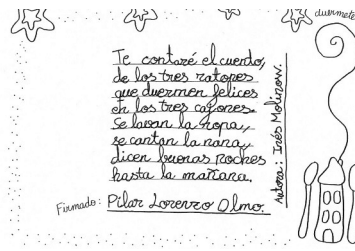 duermete
Te contaré el cuento,
de los tres ratones
que duermen felices
en los tres cajones.
Se lavan la ropa,
se cantan la nana,
dicen buenas noches
hasta la mañana.
Autora: Inés Molinow.
Firmado: Pilar Lorenzo Olmo.